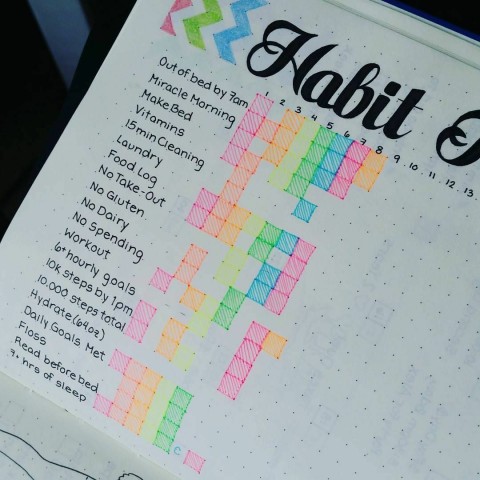 Habit
1 2 3 4 5 6 7 8 9 10 11 12 13
Out of bed by 7am
Miracle Morning
Make Bed
Vitamins
15 min Cleaning
Laundry
Food Log
No Take-Out
No Gluten
No Dairy
No Spending
Workout
6+ hourly goals
10k steps by 1pm
10,000 steps total
Hydrate (64oz)
Daily Goals Met
Floss
Read before bed
7+ hrs of sleep
C